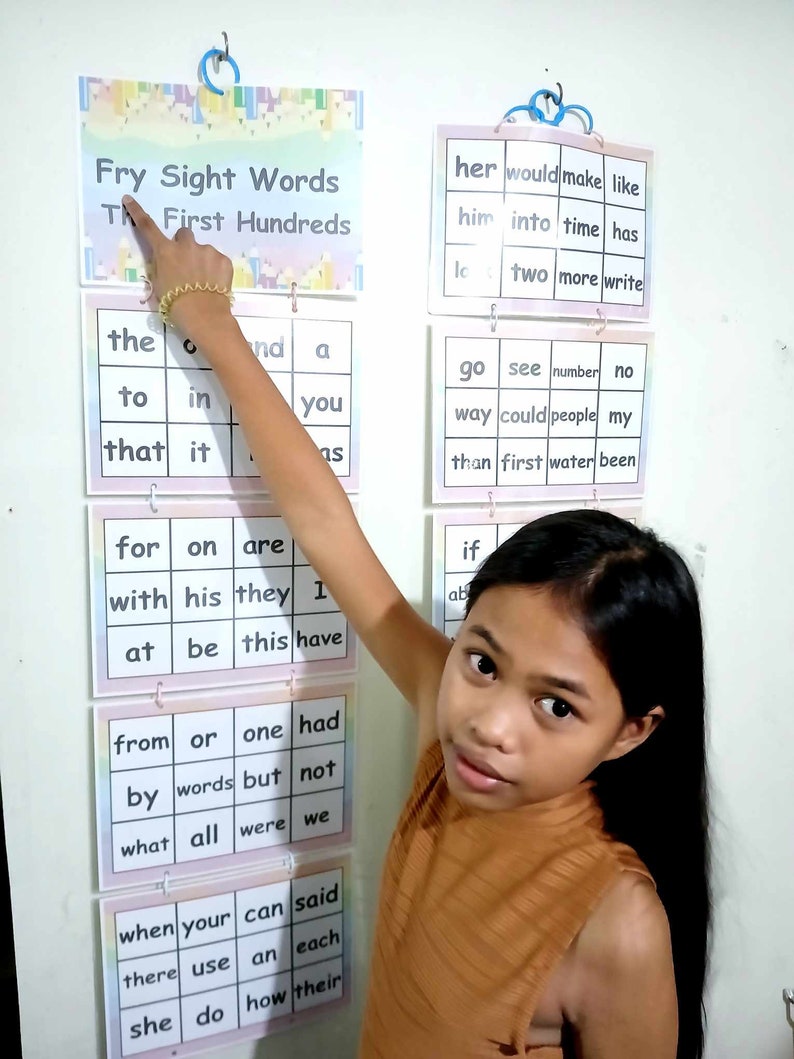 Fry Sight Words
First Hundreds
the a
to in you
that it
for on are
with his they I
at be this have
from or one had
by words but not
what all were we
when your can said
there use an each
she do how their
her would make like
him into time has
two more write
go see number no
way could people my
than first water been
if